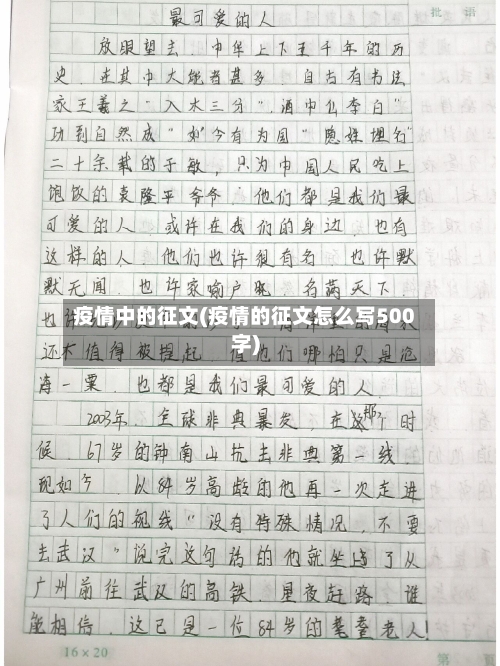 批 语
最可爱的人
放眼望去,中华上下五千年的历
史,在其中大能者甚多,自古有书法
家王羲之"入木三分",酒中仙李白"
功到自然成",如今有为国"隐姓埋名"
二十余载的于敏,只为中国人民吃上
饱饭的袁隆平爷爷,他们都是我们最
可爱的人。或许在我们的身边,也有
这样的人,他们也许很有名,也许默
默无闻,也许家喻户晓,名满天下,
疫情中的征文(疫情的征文怎么写500
字)
还不值得被提起,但他们哪怕只是沧
海一粟,也都是我们最可爱的人。
2003年,全球非典暴发,在这个时
候,67岁的钟南山抗击非典第一线,
现如今,以84岁高龄的他再一次走进
了人们的视线"没有特殊情况,不要
去武汉"说完这句话的他就坐上了从
广州前往武汉的高铁,星夜赶路,谁
能相信,这已是一位84岁的耄耋老人!
16×20
第 页